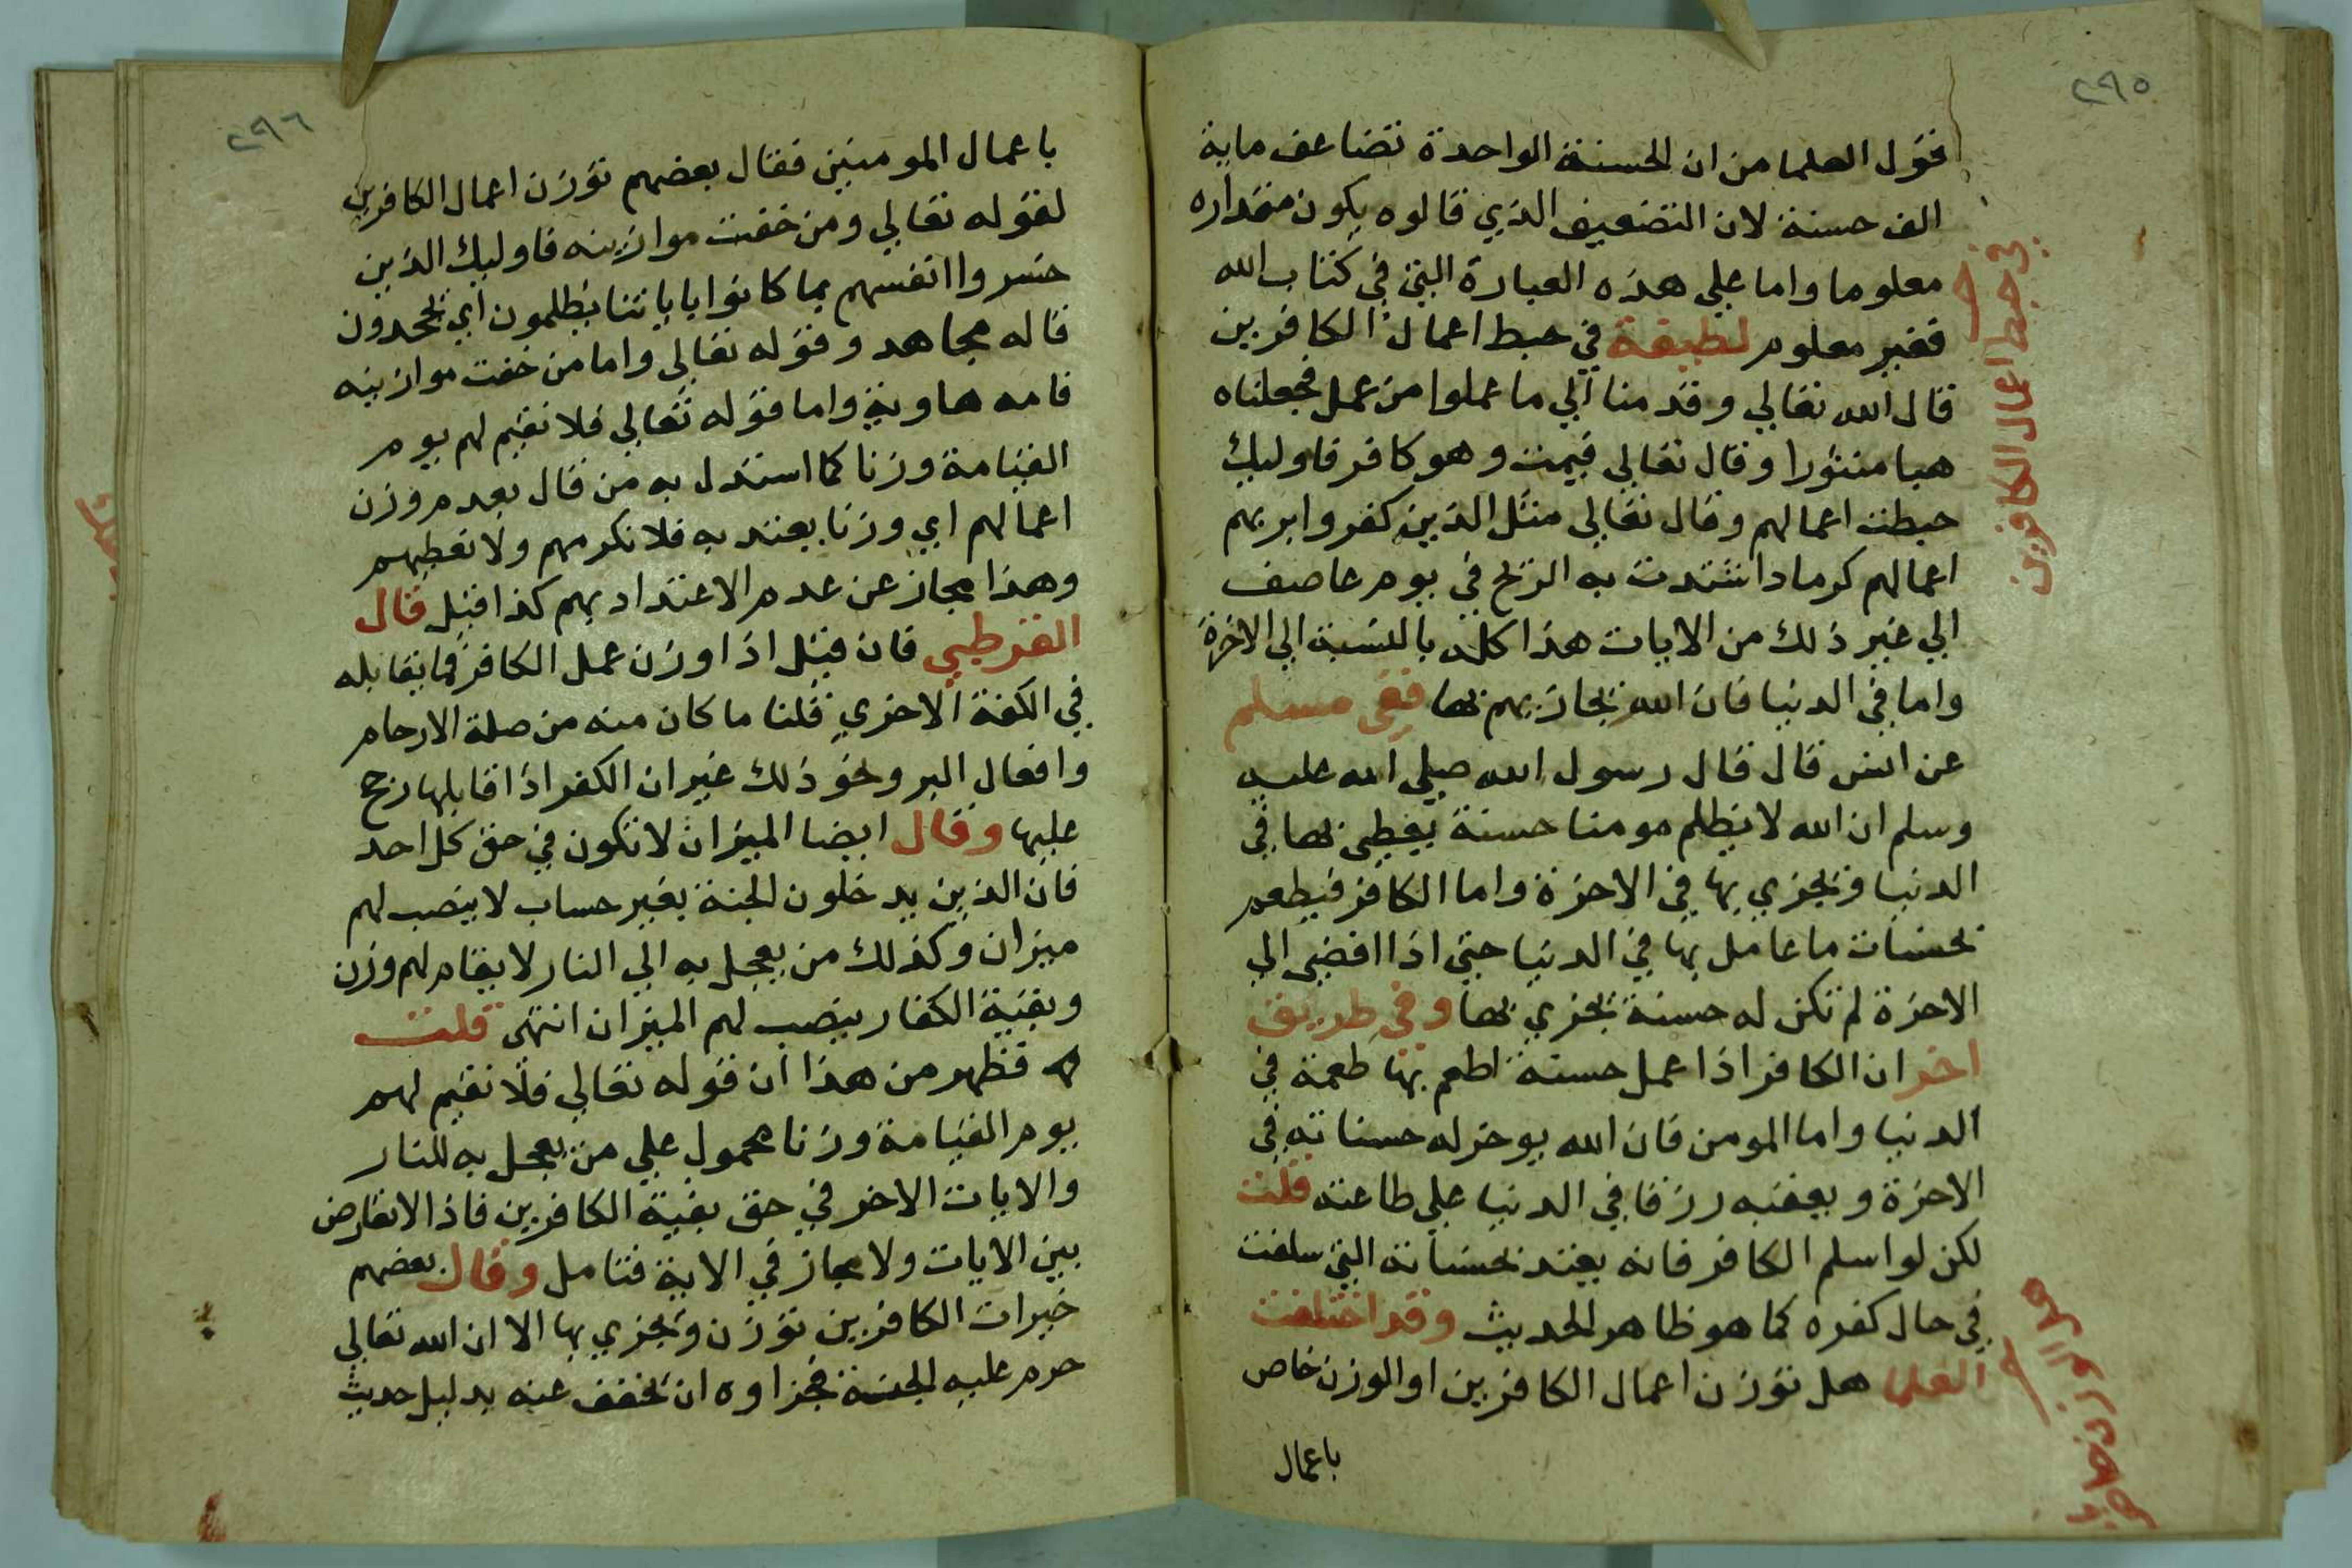 ٢٩٥
فقول العلما من ان الحسنة الواحدة تضاعف ماية
الف حسنة لان التضعيف الذي قالوه يكون مقداره
معلوما واما علي هذه العبارة التي في كتاب الله
فغير معلوم لطيفة في حبط اعمال الكافرين
قال الله تعالي وقدمنا الي ما عملوا من عمل فجعلناه
هبا منثورا وقال تعالي فيمت وهو كافر فاوليك
حبطت اعمالهم وقال تعالي مثل الذين كفروا بربهم
اعمالهم كرماد اشتدت به الريح في يوم عاصف
الي غير ذلك من الايات هذا كله بالنسبة الي الاخرة
واما في الدنيا فان الله يجازيهم بها ففي مسلم
عن انس قال قال رسول الله صلي الله عليه
وسلم ان الله لا يظلم مومنا حسنة يعطى بها في
الدنيا ويجزي بها في الاخرة واما الكافر فيطعم
بحسنات ما عامل بها في الدنيا حتي اذا افضى الي
الاخرة لم تكن له حسنة يجزي بها وفي طريق
اخر ان الكافر اذا عمل حسنة اطعم بها طعمة في
الدنيا واما المومن فان الله يوخر له حسناته في
الاخرة ويعقبه رزقا في الدنيا علي طاعته قلت
لكن لو اسلم الكافر فانه يعتد بحسناته التي سلفت
في حال كفره كما هو ظاهر الحديث وقد اختلفت
العلما هل توزن اعمال الكافرين او الوزن خاص
باعمال
في حبط اعمال الكافرين
٢٩٦
باعمال المومنين فقال بعضهم توزن اعمال الكافرين
لقوله تعالي ومن خفت موازينه فاوليك الذين
خسروا انفسهم بما كانوا باياتنا يظلمون اي يجحدون
قاله مجاهد وقوله تعالي واما من خفت موازينه
فامه هاوية واما قوله تعالي فلا نقيم لهم يوم
القيامة وزنا كما استدل به من قال بعدم وزن
اعمالهم اي وزنا يعتد به فلا نكرمهم ولا نعطيهم
وهذا مجاز عن عدم الاعتداد بهم كذا قيل قال
القرطبي فان قيل اذا وزن عمل الكافر فما يقابله
في الكفة الاخري قلنا ما كان منه من صلة الارحام
وافعال البر ونحو ذلك غير ان الكفر اذا قابلها رجح
عليها وقال ايضا الميزان لا تكون في حق كل احد
فان الذين يدخلون الجنة بغير حساب لا ينصب لهم
ميزان وكذلك من يعجل به الي النار لا يقام لهم وزن
وبقية الكفار ينصب لهم الميزان انتهى قلت
فظهر من هذا ان قوله تعالي فلا نقيم لهم
يوم القيامة وزنا محمول علي من يعجل به للنار
والايات الاخر في حق بقية الكافرين فاذا لا تعارض
بين الايات ولا مجاز في الاية فتامل وقال بعضهم
خيرات الكافرين توزن ويجزي بها الا ان الله تعالي
حرم عليه الجنة فجزاوه ان يخفف عنه بدليل حديث